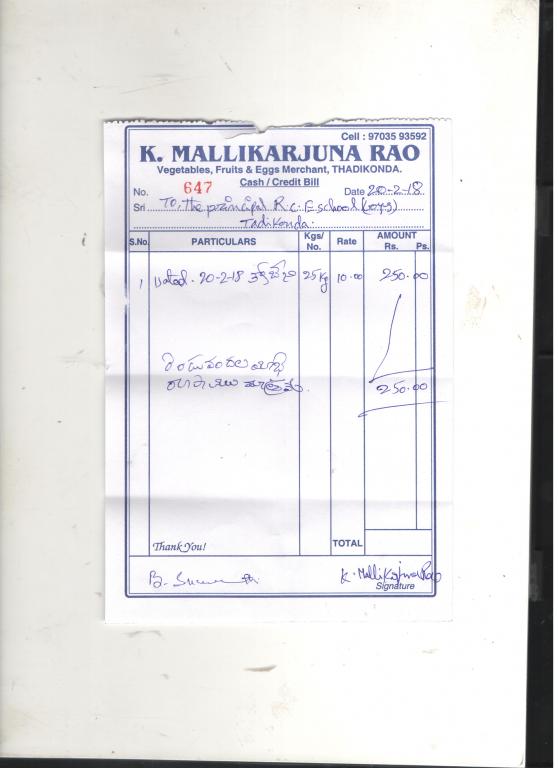 Cell : 97035 93592
K. MALLIKARJUNA RAO
Vegetables, Fruits & Eggs Merchant, THADIKONDA.
Cash / Credit Bill
No. 647 Date 20-2-18
Sri To, the principal R.C.E school (oys)
Tadikonda.
S.No. PARTICULARS Kgs/ No. Rate AMOUNT Rs. Ps.
1 Dated. 20-2-18 25kg 10.00 250.00
రెండువందల యాభై
రూపాయలు మాత్రమే. 250.00
Thank You! TOTAL
B. K. MalliKarjuna Rao
Signature